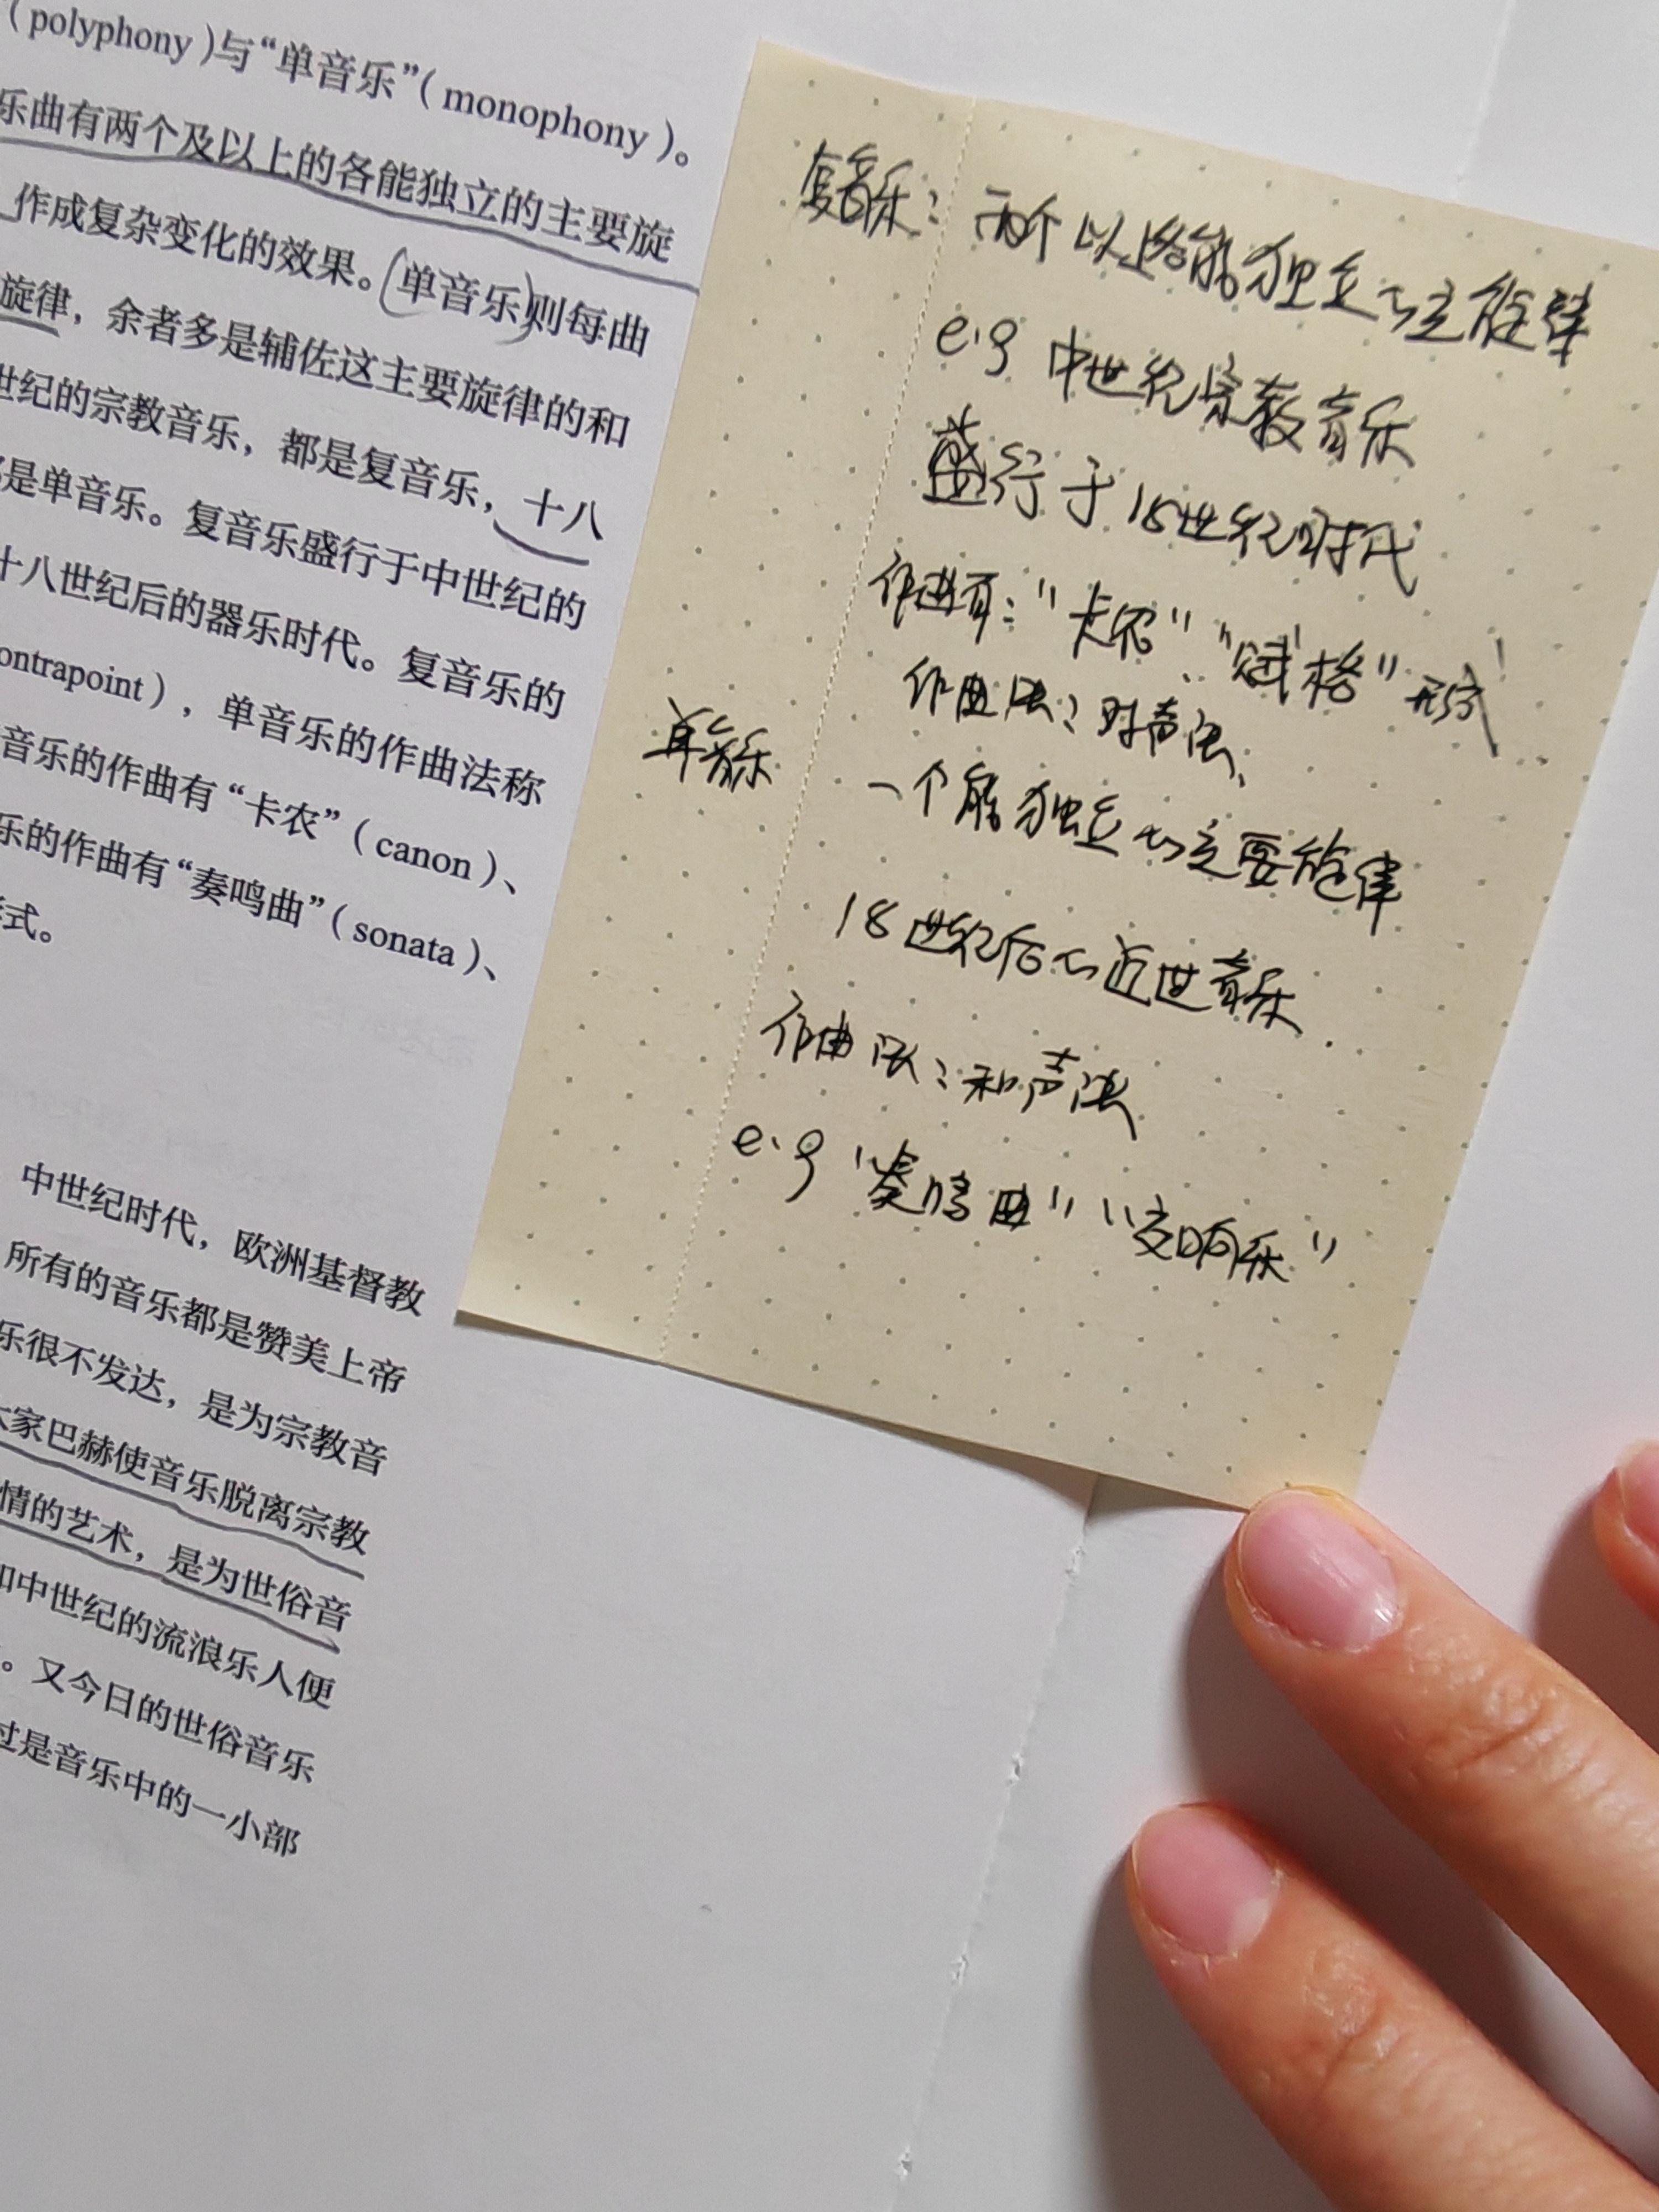 （polyphony）与“单音乐”（monophony）。
乐曲有两个及以上的各能独立的主要旋
作成复杂变化的效果。（单音乐）则每曲
旋律，余者多是辅佐这主要旋律的和
世纪的宗教音乐，都是复音乐，十八
是单音乐。复音乐盛行于中世纪的
十八世纪后的器乐时代。复音乐的
ontrapoint），单音乐的作曲法称
音乐的作曲有“卡农”（canon）、
乐的作曲有“奏鸣曲”（sonata）、
式。
中世纪时代，欧洲基督教
所有的音乐都是赞美上帝
乐很不发达，是为宗教音
大家巴赫使音乐脱离宗教
情的艺术，是为世俗音
中世纪的流浪乐人便
。又今日的世俗音乐
过是音乐中的一小部
复音乐：两个以上各能独立的主旋律
e.g 中世纪宗教音乐
盛行于18世纪时代
作曲有：“卡农”、“赋格”形式
作曲法：对声法
单音乐 一个能独立的主要旋律
18世纪后的近世音乐.
作曲法：和声法
e.g “奏鸣曲”“交响乐”